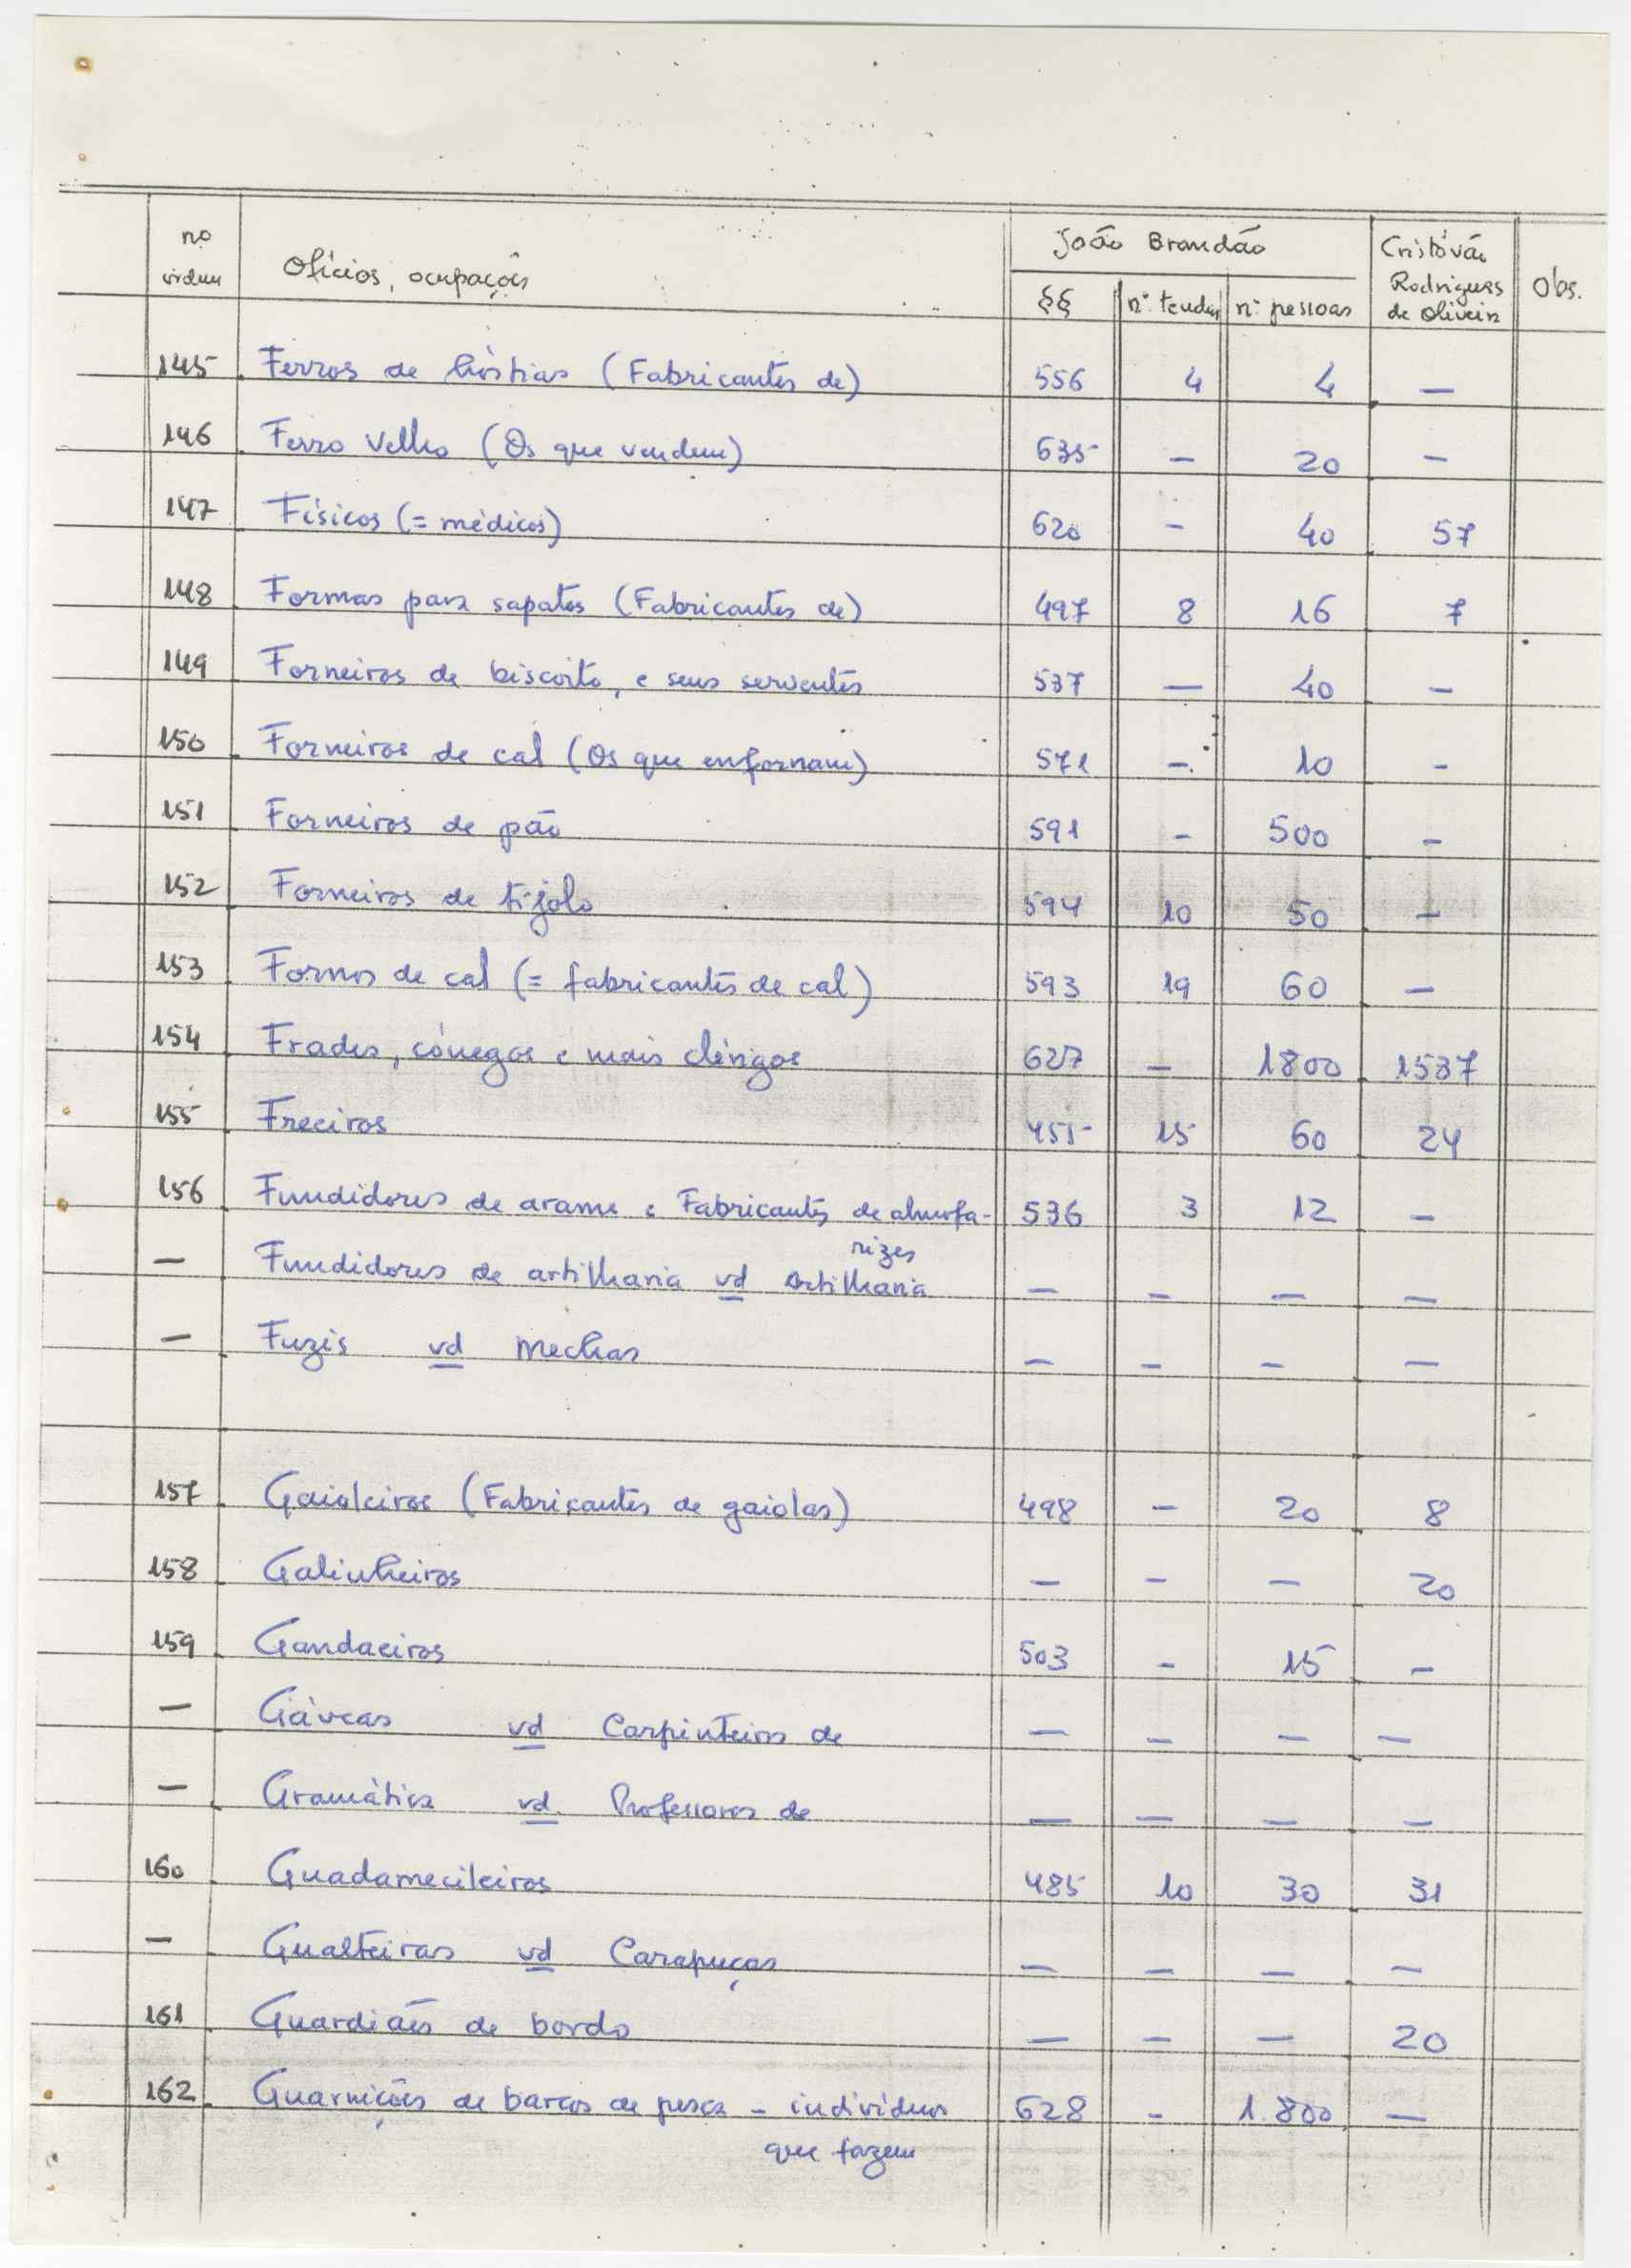 nº ordem | Ofícios, ocupações | João Brandão | Cristóvão Rodrigues de Oliveira | Obs.
§§ | nº tendas | nº pessoas
145 Ferros de hóstias (Fabricantes de) 556 4 4 —
146 Ferro Velho (Os que vendem) 635 — 20 —
147 Físicos (= médicos) 620 — 40 57
148 Formas para sapatos (Fabricantes de) 497 8 16 7
149 Forneiros de biscoito, e seus serventes 537 — 40 —
150 Forneiros de cal (Os que enfornam) 571 — 10 —
151 Forneiros de pão 591 — 500 —
152 Forneiros de tijolo 594 10 50 —
153 Fornos de cal (= fabricantes de cal) 593 19 60 —
154 Frades, cónegos e mais clérigos 627 — 1800 1537
155 Freeiros 455 15 60 24
156 Fundidores de arame e Fabricantes de almofa- 536 3 12 —
rizes
— Fundidores de artilharia vd Artilharia — — — —
— Fuzis vd Mechas — — — —
157 Gaioleiros (Fabricantes de gaiolas) 498 — 20 8
158 Galinheiros — — — 20
159 Gandaeiros 503 — 15 —
— Gáveas vd Carpinteiros de — — — —
— Gramática vd. Professores de — — — —
160 Guadamecileiros 485 10 30 31
— Gualteiras vd Carapuças — — — —
161 Guardiães de bordo — — — 20
162 Guarnições de barcos de pesca – indivíduos 628 — 1.800 —
que fazem